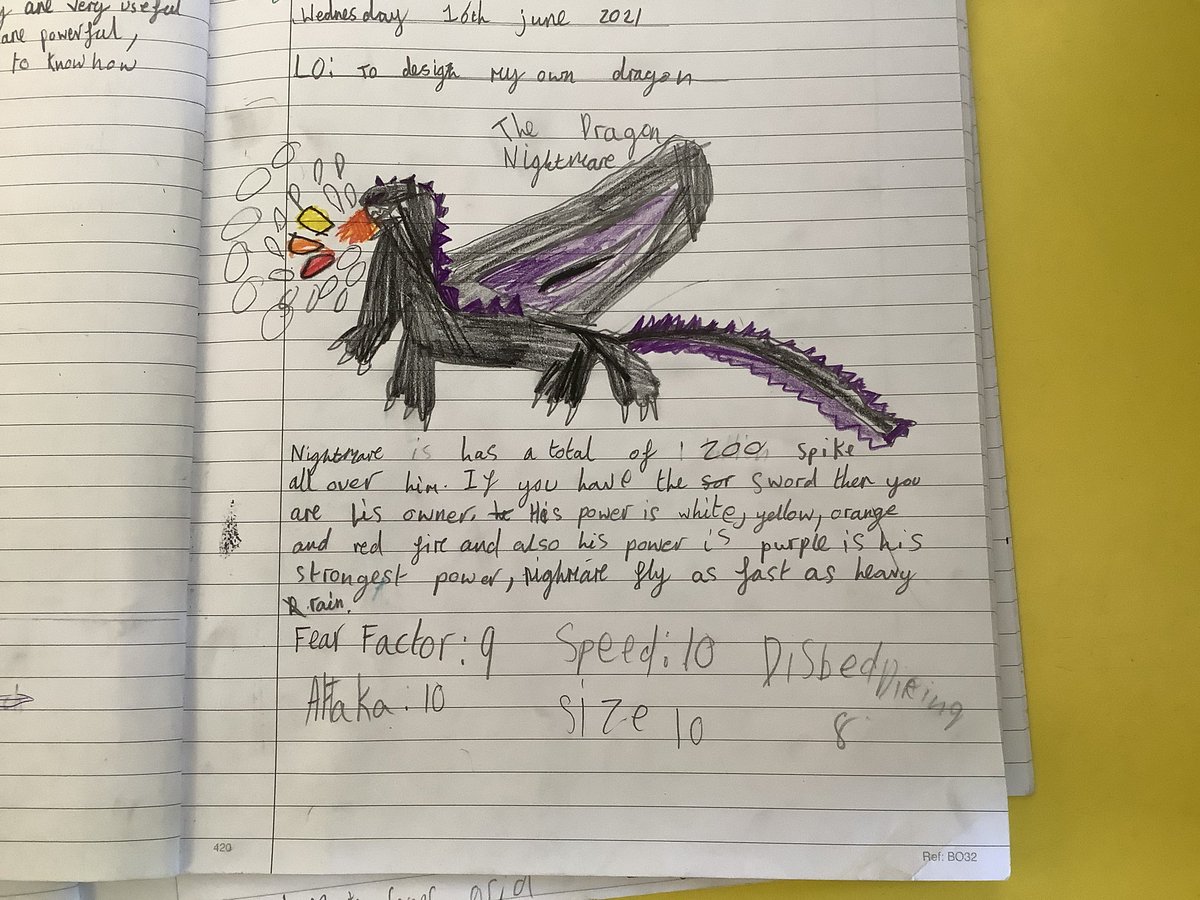 y are very useful
are powerful,
to know how
Wednesday 16th june 2021
LO: To design my own dragon
The Dragon
Nightmare
Nightmare is has a total of 1200 spike
all over him. If you have the sor sword then you
are his owner. he His power is white, yellow, orange
and red fire and also his power is purple is his
strongest power, Nighmare fly as fast as heavy
R rain.
Fear Factor: 9 Speed: 10 DiSbedDieing
8
Attaka: 10 Size 10
420
Ref: BO32